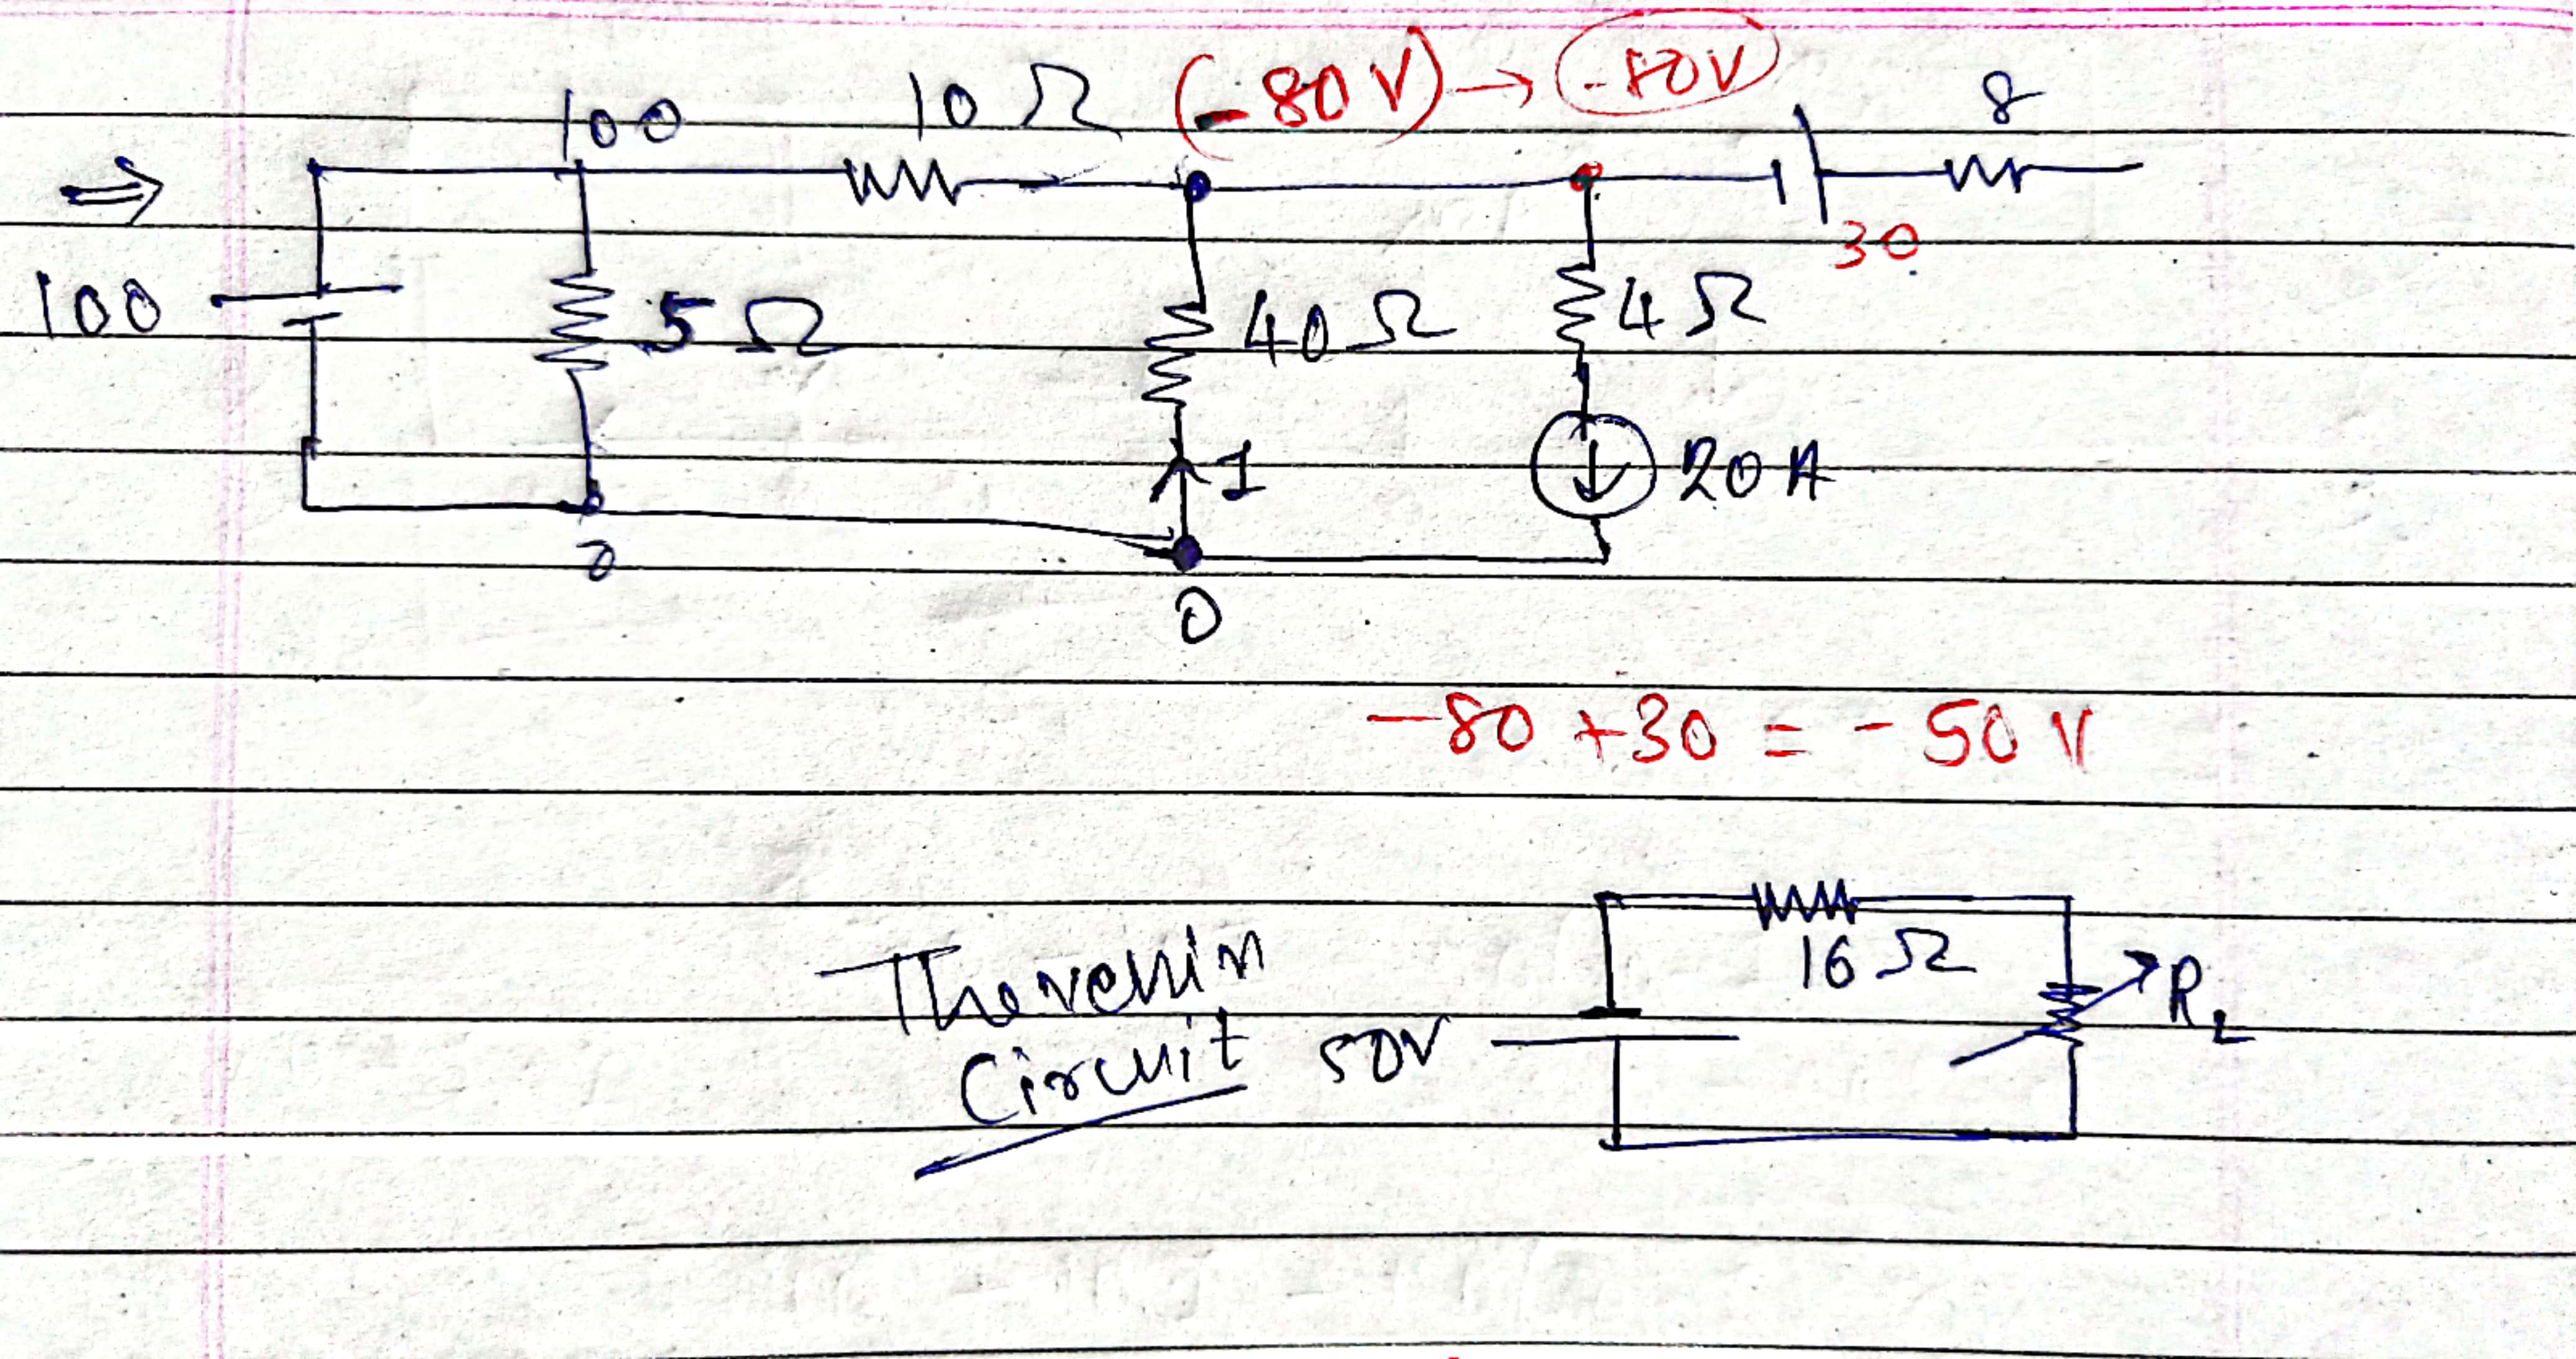 (-80V) → -80V
100 10 Ω 8
⇒
30
100 5 Ω 40 Ω 4 Ω
I 20 A
0
0
-80 +30 = -50 V
Thevenin
Circuit
16 Ω
50V
R_L